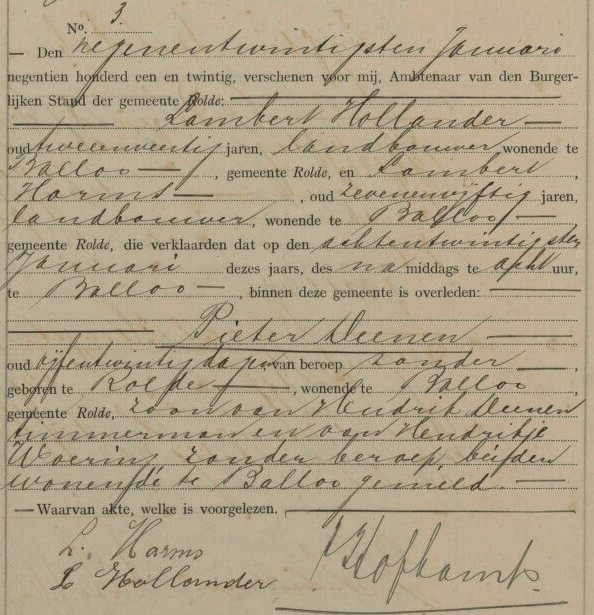 No. 3.
— Den negenentwintigsten Januari
negentien honderd een en twintig, verschenen voor mij, Ambtenaar van den Burger-
lijken Stand der gemeente Rolde:
Lambert Hollander —
oud tweeenveertig jaren, landbouwer wonende te
Balloo — , gemeente Rolde, en Lambert
Harms — , oud zevenenvijftig jaren,
landbouwer, wonende te Balloo — ,
gemeente Rolde, die verklaarden dat op den achtentwintigsten
Januari dezes jaars, des namiddags te acht uur,
te Balloo — , binnen deze gemeente is overleden:
Pieter Deenen —
oud vijfentwintig dagen, van beroep zonder — ,
geboren te Rolde — , wonende te Balloo ,
gemeente Rolde, zoon van Hendrik Deenen
timmerman en van Hendrikje
zonder beroep, beiden
wonende te Balloo gemeld. —
— Waarvan akte, welke is voorgelezen.
L. Harms
L Hollander
Hofkamp.